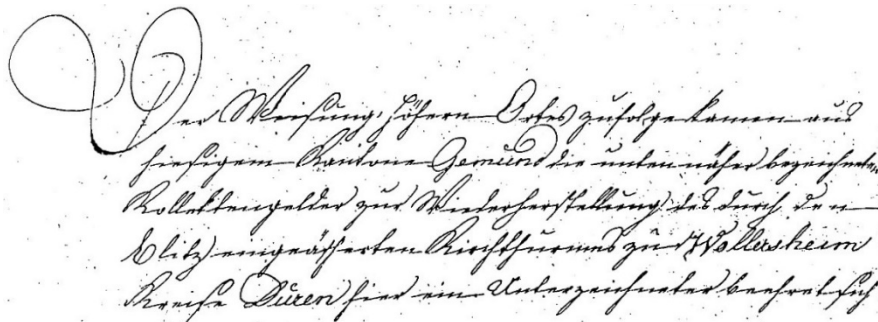 Der Weisung höhern Ortes zufolge kamen aus
hiesigem Kantone Gemünd die unten näher bezeichneten
Kollektengelder zur Wiederherstellung des durch den
Blitz eingeäscherten Kirchthurmes zu Wollersheim
Kreise Düren hier ein Unterzeichneter beehret sich